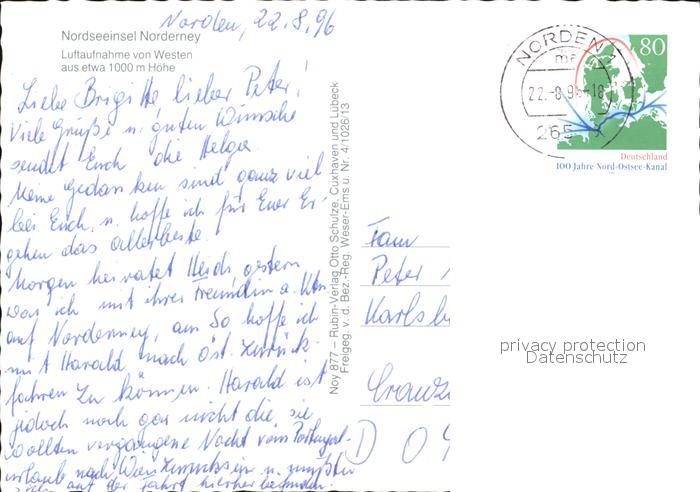 Norden, 22.8.96
Nordseeinsel Norderney
Luftaufnahme von Westen
aus etwa 1000 m Höhe
Liebe Brigitte, lieber Peter!
Viele Grüße u. guten Wünsche
sendet Euch die Helga.
Meine Gedanken sind ganz viel
bei Euch, u. hoffe ich für Euer Er-
gehen das allerbeste.
Morgen heiratet Heidi, gestern
war ich mit ihrer Freundin a.
auf Norderney, am So hoffe ich
mit Harald nach Öst. zurück-
fahren zu können. Harald ist
jedoch noch gar nicht da, sie
wollten vergangene Nacht vom Portugal-
urlaub nach Wien zurück sein u. müßten
auf der Fahrt hierher
Noy 877 – Rubin-Verlag Otto Schulze, Cuxhaven und Lübeck
Freigeg. v. d. Bez.-Reg. Weser-Ems u. Nr. 4/1026/13
NORDEN
ma
22.-8.96-18
265
80
Deutschland
100 Jahre Nord-Ostsee-Kanal
Fam
Peter
Karlsb
Cranz
D 0
privacy protection
Datenschutz